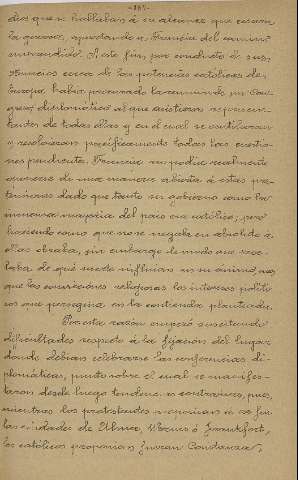 dios que se hallaban á su alcance que cesara
la guerra, apartando á Francia del camino
emprendido. A este fin por conducto de sus
nuncios cerca de las potencias católicas de
Europa había procurado la reunión de un Con-
greso diplomático al que asistieran represen-
tantes de todas ellas y en el cual se ventilaran
y resolvieran pacíficamente todas las cuestio-
nes pendientes. Francia no podía realmente
oponerse de una manera abierta á estas pre-
tensiones dado que tanto su gobierno como la
inmensa mayoría del país era católica, pero
haciendo como que no se negaba en absoluto á
ellas obraba, sin embargo de modo que reve-
laba de qué suerte influían en su ánimo, más
que las convicciones religiosas los intereses políti-
cos que perseguía en la contienda planteada.
Por esta razón empezó suscitando
dificultades respecto á la fijación del lugar
donde debían celebrarse las conferencias di-
plomáticas, punto sobre el cual se manifes-
taron desde luego tendencias contrarias, pues,
mientras los protestantes proponían
las ciudades de Ulma, Worms ó Francfort,
los católicos proponían fueran Constanza,